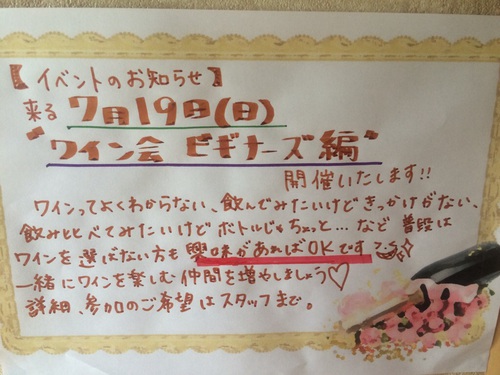 【イベントのお知らせ】
来る 7月19日(日)
"ワイン会 ビギナーズ編"
開催いたします!!
ワインってよくわからない、飲んでみたいけどきっかけがない、
飲み比べてみたいけどボトルじゃちょっと…など 普段は
ワインを選ばない方も興味があればOKです
一緒にワインを楽しむ仲間を増やしましょう♡
詳細、参加のご希望はスタッフまで。